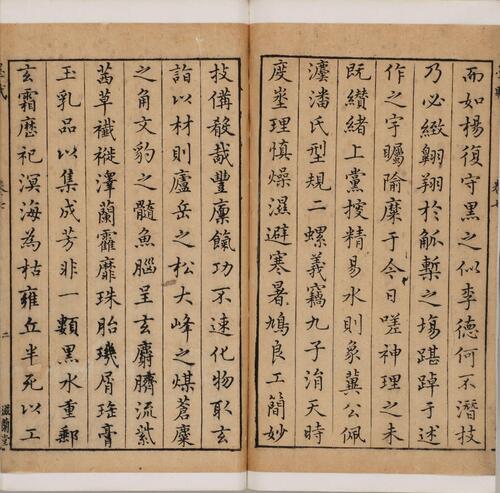 而如楊復守黑之似李德何不潛技
乃必緻翺翔於觚槧之塲踸踔于述
作之宇矚隃糜于今日嗟神理之未
既纘緒上黨授精易水則象冀公佩
潘氏型規二螺義竊九子消天時
度埊理慎燥濕避寒暑鳩良工簡妙
技傋殺哉豐廩餼功不速化物取玄
詣以材則廬岳之松大峰之煤蒼麋
之角文豹之髓魚腦呈玄麝臍流紫
茜草襳褷澤蘭靃靡珠胎璣屑瑤膏
玉乳品以集成芳非一類黑水重鄿
玄霜歷祀溟海為枯雍丘半死以工
卷七
二
滋蘭堂